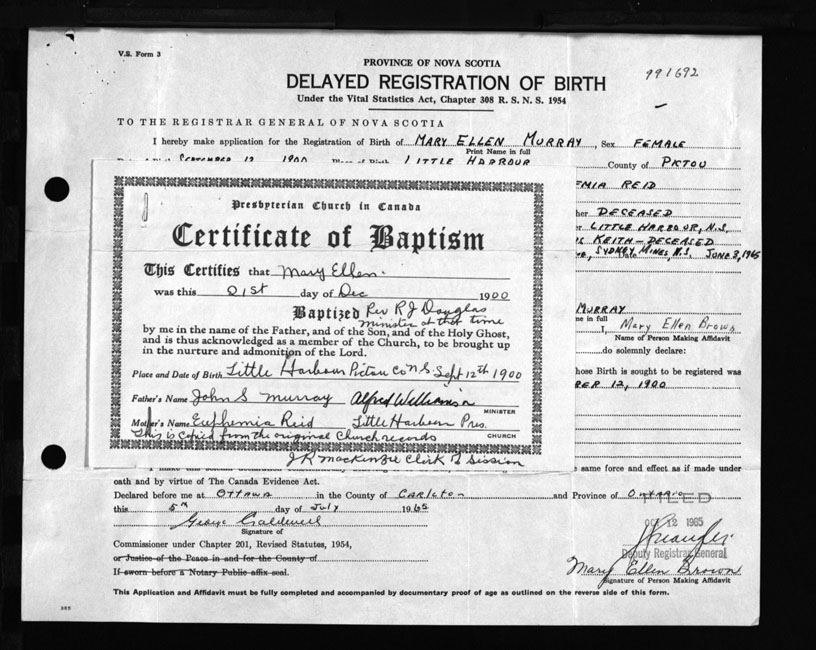 V.S. Form 3
PROVINCE OF NOVA SCOTIA
991692
DELAYED REGISTRATION OF BIRTH
Under the Vital Statistics Act, Chapter 308 R. S. N. S. 1954
TO THE REGISTRAR GENERAL OF NOVA SCOTIA
I hereby make application for the Registration of Birth of MARY ELLEN MURRAY, Sex FEMALE
Print Name in full
SEPTEMBER 12 1900 Place of Birth LITTLE HARBOUR County of PICTOU
EMIA REID
her DECEASED
LITTLE HARBOUR, N.S.
KEITH - DECEASED
SYDNEY MINES, N.S. Date JUNE 3, 1965
Presbyterian Church in Canada
Certificate of Baptism
This Certifies that Mary Ellen.
was this 21st day of Dec 1900
Baptized Rev R J Douglas
minister at that time
by me in the name of the Father, and of the Son, and of the Holy Ghost,
and is thus acknowledged as a member of the Church, to be brought up
in the nurture and admonition of the Lord.
Place and Date of Birth Little Harbour Pictou Co N.S. Sept 12th 1900
Father's Name John S Murray Alfred Williamson
MINISTER
Mother's Name Euphemia Reid Little Harbour Pres.
CHURCH
This is copied from the original Church records
J R MacKenzie Clerk of Session
MURRAY
me in full
I, Mary Ellen Brown
Name of Person Making Affidavit
do solemnly declare:
hose Birth is sought to be registered was
BER 12, 1900
e same force and effect as if made under
oath and by virtue of The Canada Evidence Act.
Declared before me at OTTAWA in the County of Carleton and Province of Ontario
FILED
this 5th day of July 1965
OCT 12 1965
George Caldwell
Signature of
Commissioner under Chapter 201, Revised Statutes, 1954,
Deputy Registrar General
or Justice of the Peace in and for the County of
If sworn before a Notary Public affix seal.
Mary Ellen Brown
Signature of Person Making Affidavit
This Application and Affidavit must be fully completed and accompanied by documentary proof of age as outlined on the reverse side of this form.